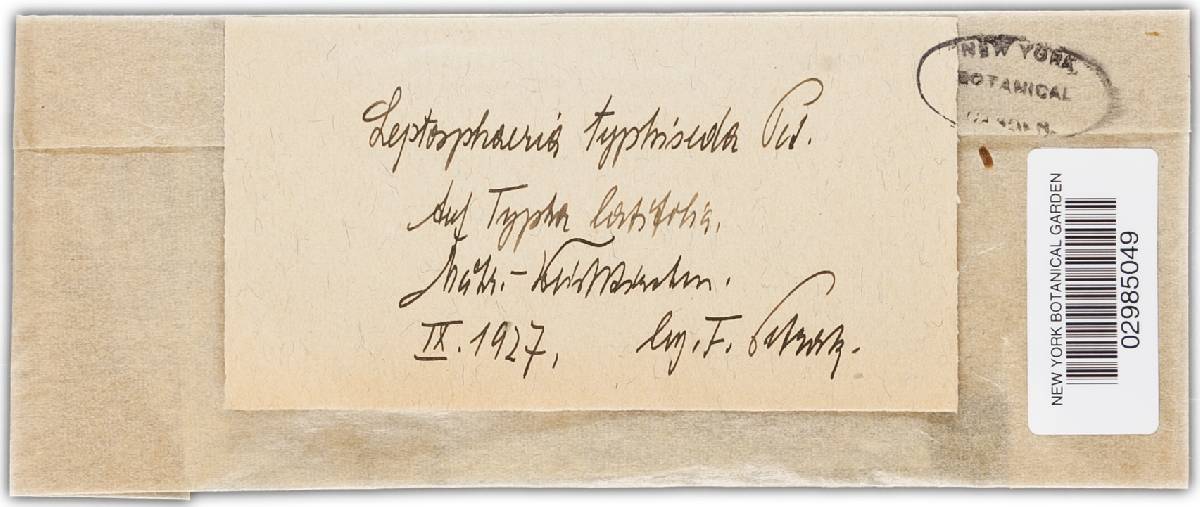 Leptosphaeria typhiseda Pet.
Auf Typha latifolia.
Mähr.-Weisskirchen.
IX. 1927. leg. F. Petrak.
NEW YORK
BOTANICAL
GARDEN.
NEW YORK BOTANICAL GARDEN
02985049